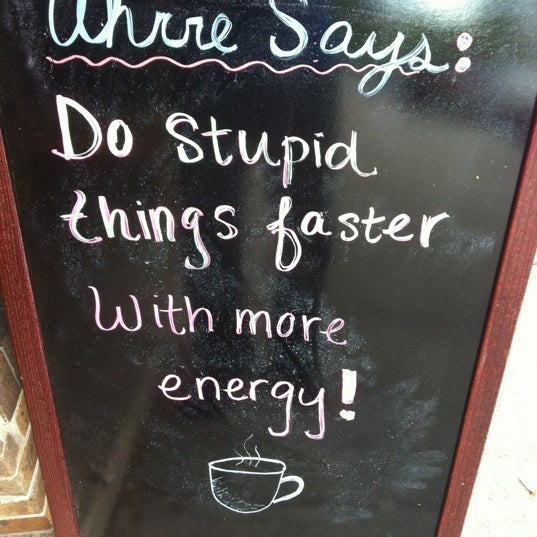 Says:
Do Stupid
things faster
With more
energy!